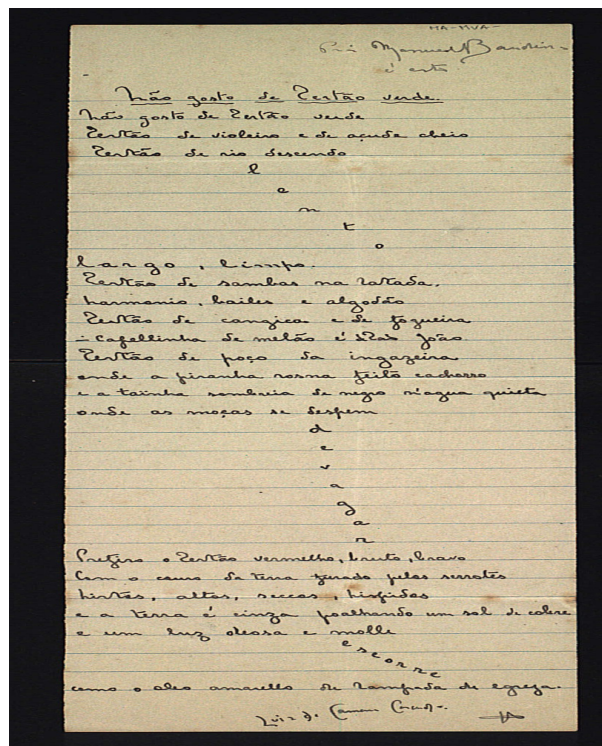 MA-MVA-
Pra Manuel Bandeira
é esta
Não gosto de Sertão verde.
Não gosto de Sertão verde
Sertão de violeiro e de açude cheio
Sertão de rio descendo
l
e
n
t
o
largo, limpo.
Sertão de sambas na latada,
harmonio, bailes e algodão
Sertão de cangica e de fogueira
– Capellinha de melão é de São João
Sertão de poço da ingazeira
onde a piranha rosna feito cachorro
e a tainha sombreia de negro n'agua quieta
onde as moças se despem
d
e
v
a
g
a
r
Prefiro o Sertão vermelho, bruto, bravo
Com o couro da terra furado pelos serrotes
hirtos, altos, seccos, hispidos
e a terra é cinza poalhando um sol de cobre
e um luz oleosa e molle
e
s
c
o
r
r
e
como o oleo amarello de lampada de egreja.
Luis da Camara Cascudo